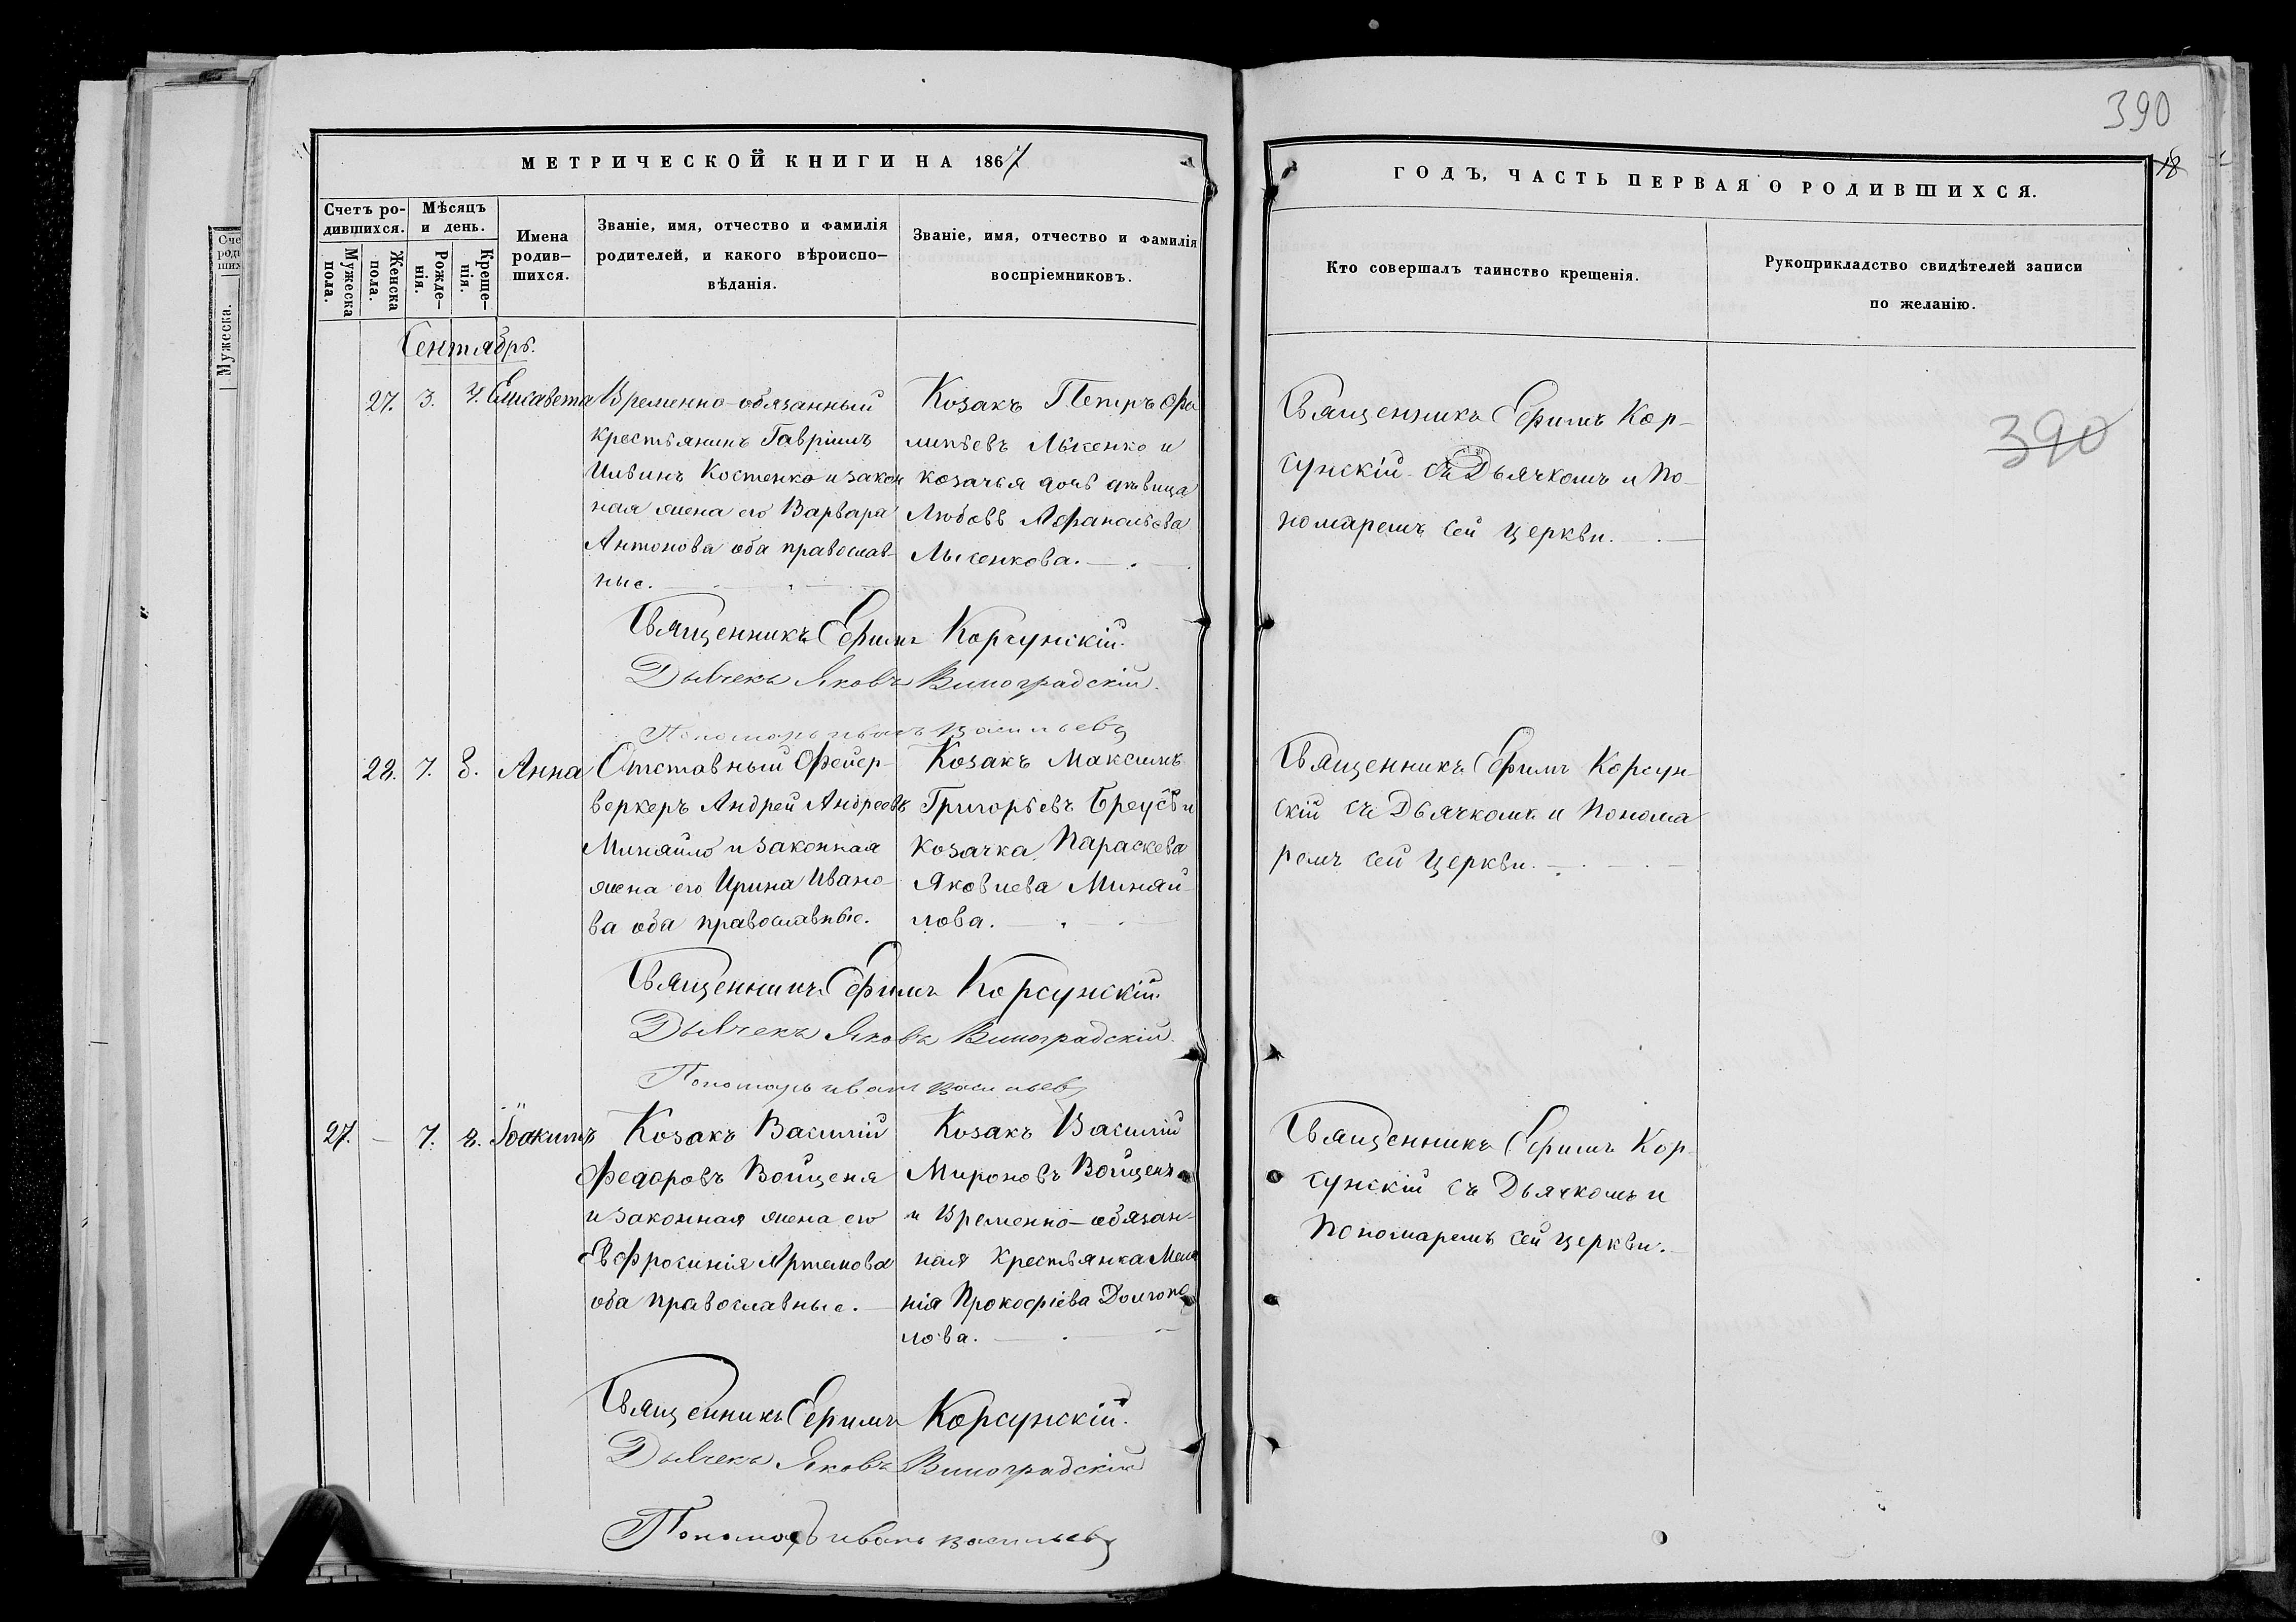 390
МЕТРИЧЕСКОЙ КНИГИ НА 1867
ГОДЪ, ЧАСТЬ ПЕРВАЯ О РОДИВШИХСЯ.
18
Счетъ ро-
дившихся.
Мужеска
пола.
Женска
пола.
Мѣсяцъ
и день.
Рожде-
нія.
Креще-
нія.
Имена
родив-
шихся.
Званіе, имя, отчество и фамилія
родителей, и какого вѣроиспо-
вѣданія.
Званіе, имя, отчество и фамилія
воспріемниковъ.
Кто совершалъ таинство крещенія.
Рукоприкладство свидѣтелей записи
по желанію.
Мужеска.
Сентябрь.
27. 3. 4. Елисавета
Временно-обязанный
крестьянинъ Гавріилъ
Ильинъ Костенко и закон
ная жена его Варвара
Антонова оба православ-
ные.
Козакъ Петръ Фи
липьевъ Лысенко и
козачья дочь дѣвица
Любовь Афанасьева
Лысенкова.
Священникъ Ефимъ Кор-
сунскій съ Дьячкомъ и По-
номаремъ сей церкви.
390
Священникъ Ефимъ Корсунскій.
Дьячекъ Яковъ Виноградскій.
Пономарь Иванъ Васильевъ
28. 7. 8. Анна
Отставный Фейер-
веркеръ Андрей Андреевъ
Миняйло и законная
жена его Ирина Ивано-
ва оба православные.
Козакъ Максимъ
Григорьевъ Бреусъ и
козачка Параскева
Яковлева Миняй-
лова.
Священникъ Ефимъ Корсун-
скій съ Дьячкомъ и Понома
ремъ сей церкви.
Священникъ Ефимъ Корсунскій.
Дьячекъ Яковъ Виноградскій.
Пономарь Иванъ Васильевъ
27. — 7. 8. Іоакимъ
Козакъ Василій
Федоровъ Вощеня
и законная жена его
Евфросинія Артемова
оба православные.
Козакъ Василій
Мироновъ Вощеня
и Временно-обязан-
ная Крестьянка Мела
нія Прокофіева Долгопо
лова.
Священникъ Ефимъ Кор-
сунскій съ Дьячкомъ и
Пономаремъ сей церкви.
Священникъ Ефимъ Корсунскій.
Дьячекъ Яковъ Виноградскій
Пономарь Иванъ Васильевъ